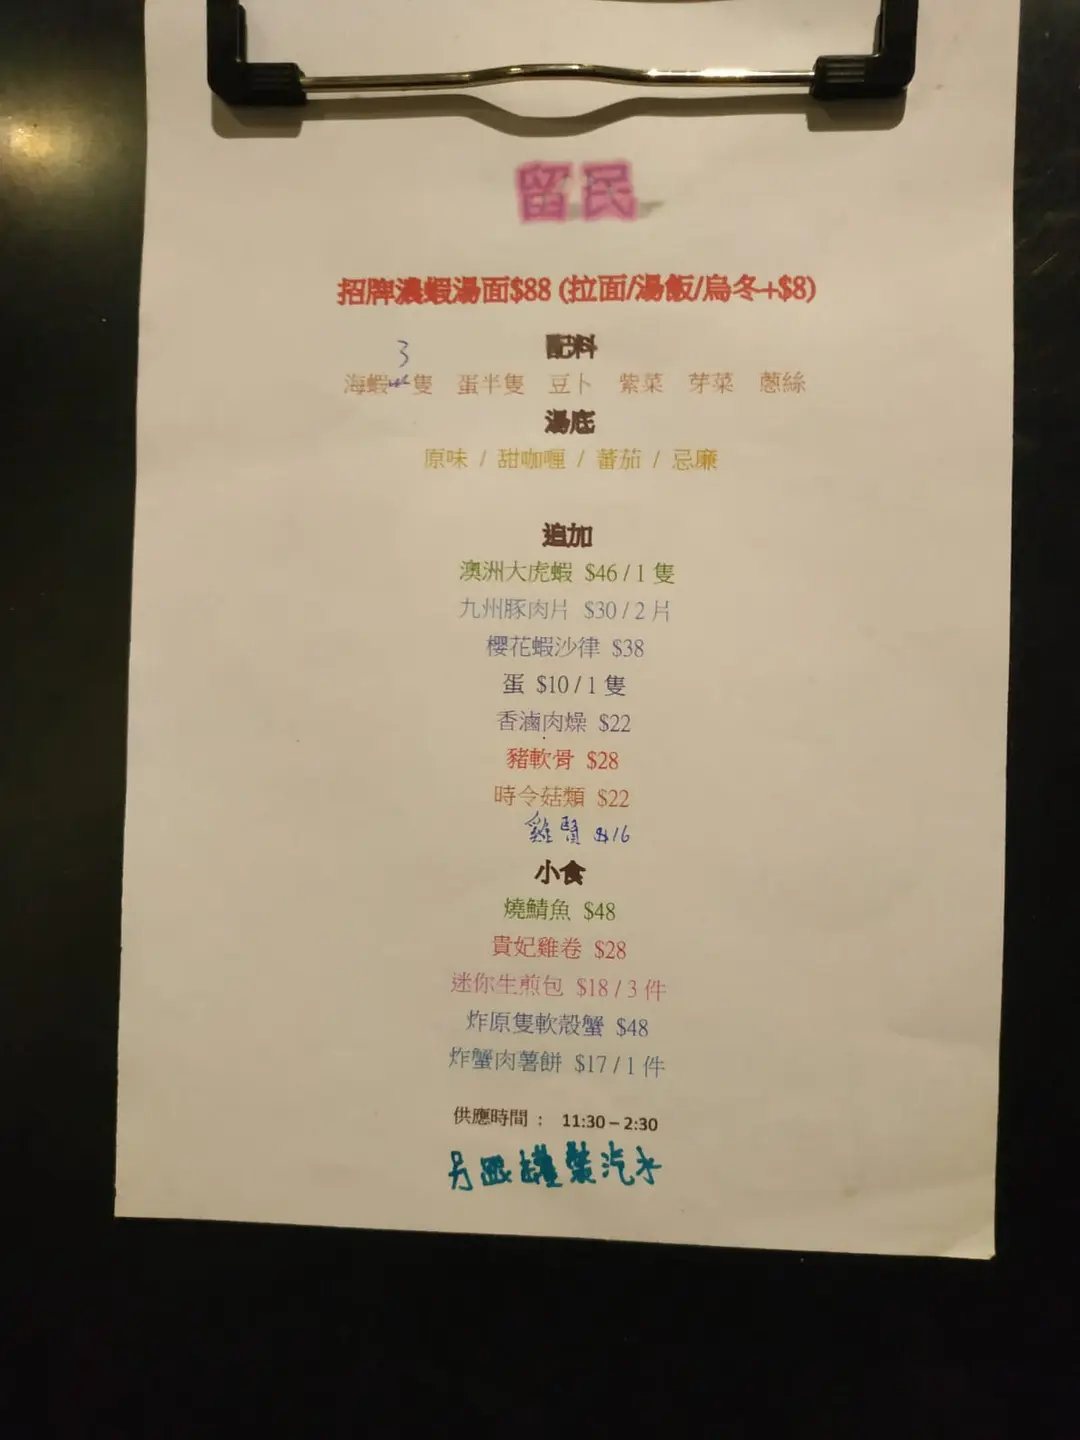 留民
招牌濃蝦湯面$88 (拉面/湯飯/烏冬+$8)
配料
3
海蝦隻 蛋半隻 豆卜 紫菜 芽菜 蔥絲
湯底
原味 / 甜咖喱 / 蕃茄 / 忌廉
追加
澳洲大虎蝦 $46 / 1 隻
九州豚肉片 $30 / 2 片
櫻花蝦沙律 $38
蛋 $10 / 1 隻
香滷肉燥 $22
豬軟骨 $28
時令菇類 $22
雞腎 $16
小食
燒鯖魚 $48
貴妃雞卷 $28
迷你生煎包 $18 / 3 件
炸原隻軟殼蟹 $48
炸蟹肉薯餅 $17 / 1 件
供應時間 : 11:30 – 2:30
另跟罐裝汽水